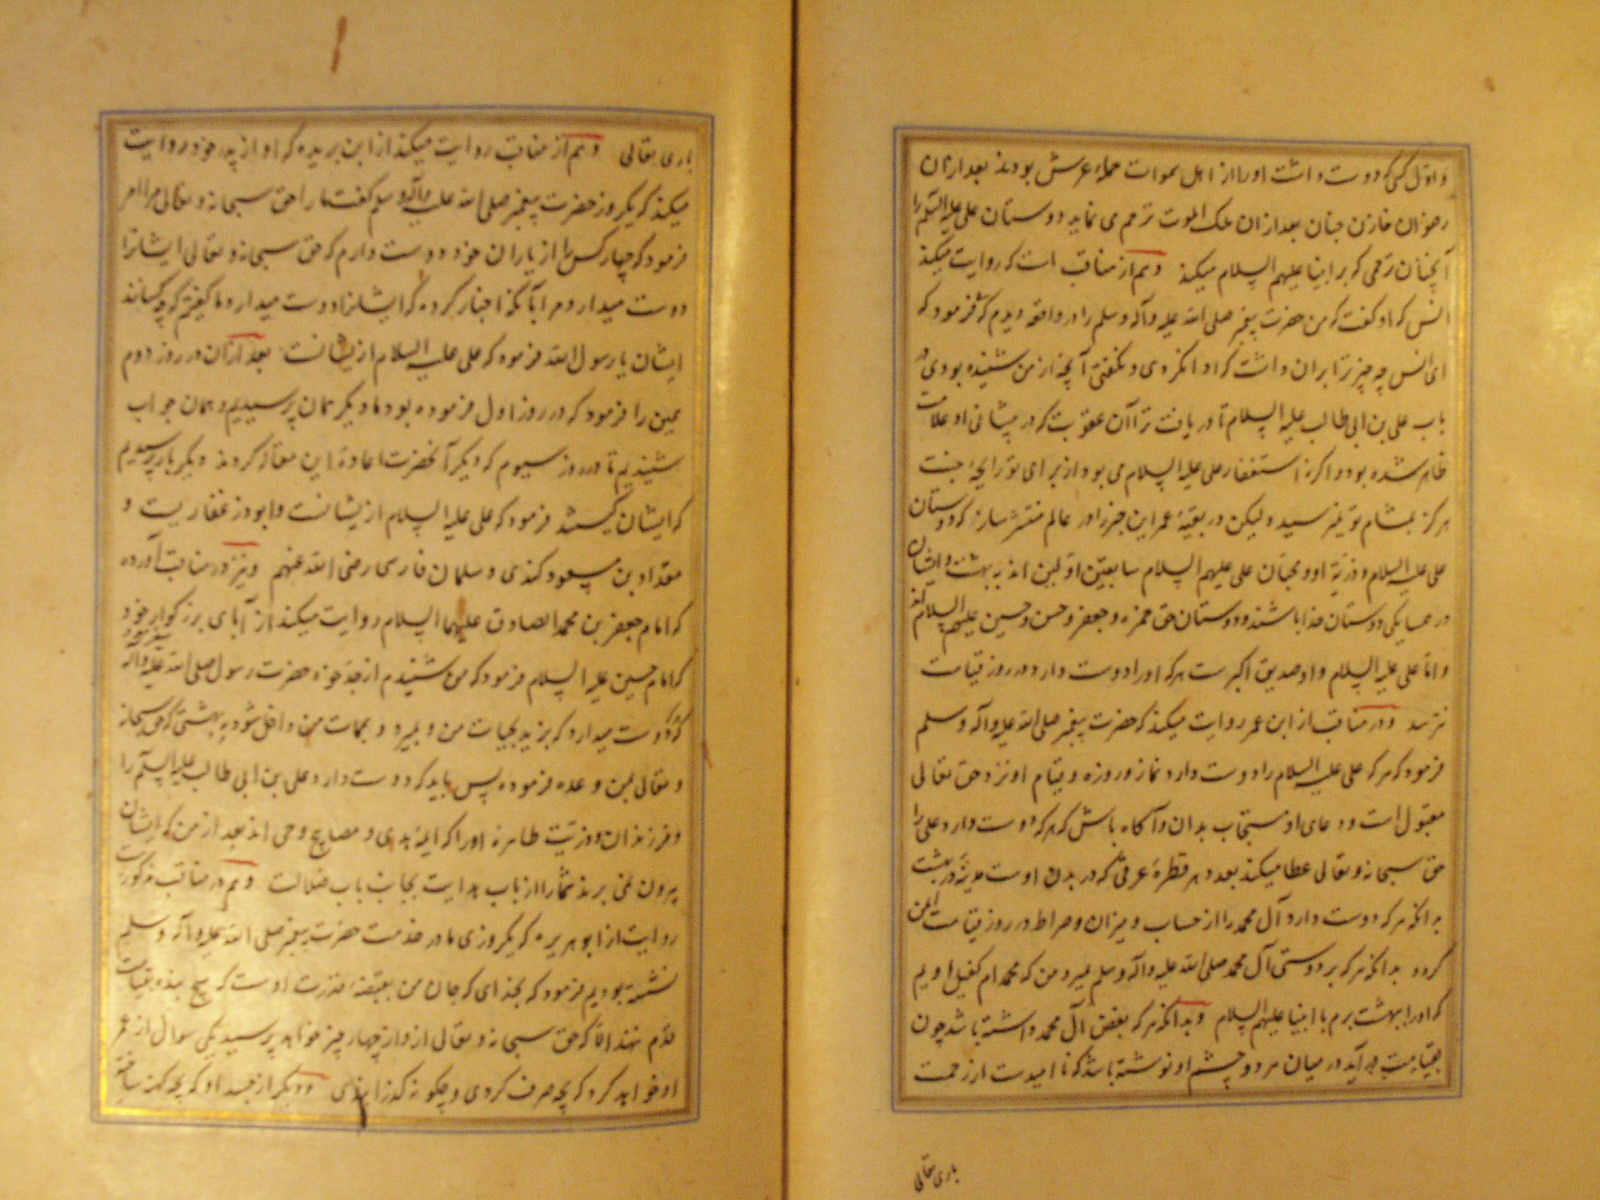 و اوّل کسی که دوست داشت او را از اهل سموات حملهٔ عرش بودند بعد ازان
رضوان خازن جنان بعد ازان ملک الموت ترحم می نماید دوستان علی علیه السلم را
آنچنان ترحمی که بر انبیا علیهم السلام میکند وهم از مناقب است که روایت میکند
انس که او گفت که من حضرت پیغمبر صلی الله علیه وآله وسلم را در واقعه دیدم که فرمود که
ای انس چه چیز ترا بران داشت که ادا نکردی و نگفتی آنچه از من شنیده بودی در
باب علی بن ابی طالب علیه السلام تا دریافت ترا آن عقوبت که در پیشانی او علامت
ظاهر شده بود و اگر نه استغفار علی علیه السلام می بود از برای تو رایحهٔ جنت
هرگز بمشام تو نمیرسید ولیکن در بقیهٔ عمر این خبر را در عالم منتشر ساز که دوستان
علی علیه السلام و ذریّهٔ او و محبان علی علیهم السلام سابقین اوّلین اند به بهشت و ایشان
در همسایکی دوستان خدا باشند و دوستان حق حمزه و جعفر و حسن و حسین علیهم السلام اند
و امّا علی علیه السلام و او صدیق اکبرست هر که او را دوست دارد در روز قیامت
نترسد و در مناقب از ابن عمر روایت میکند که حضرت پیغمبر صلی الله علیه وآله وسلم
فرمود که هر که علی علیه السلام را دوست دارد نماز و روزه و قیام او نزد حق تعالی
مقبول است و دعای او مستجاب بدان و آکاه باش که هر که دوست دارد علی را
حق سبحانه و تعالی عطا میکند بعدد هر قطرهٔ عرقی که در بدن اوست مدینه در بهشت
بدانکه هر که دوست دارد آل محمد را از حساب و میزان و صراط در روز قیامت ایمن
کردد بدانکه هر که بر دوستی آل محمد صلی الله علیه وآله وسلم بمیرد من که محمدم کفیل اویم
که او را ببهشت برم با انبیا علیهم السلام و بدانکه هر که بغض آل محمد داشته باشد چون
بقیامت برآید در میان هر دو چشم او نوشته باشد که ناامیدست از رحمت
باری تعالی
باری تعالی وهم از مناقب روایت میکند از ابن بریده که او از پدر خود روایت
میکند که یکروز حضرت پیغمبر صلی الله علیه وآله وسلم گفت ما را حق سبحانه و تعالی مرا امر
فرمود که چهار کس را از یاران خود دوست دارم که حق سبحانه و تعالی ایشانرا
دوست میدارد و مرا بآنکه اخبار کرده که ایشانرا دوست میدارد ما گفتیم که چه کسانند
ایشان یا رسول الله فرمود که علی علیه السلام از ایشانست بعد ازان در روز دوم
همین را فرمود که در روز اول فرموده بود ما دیگر همان پرسیدیم و همان جواب
شنیدیم تا در روز سیوم که دیگر آنحضرت اعادهٔ این مقال کردند دیگر بار پرسیدیم
که ایشان کیستند فرمود که علی علیه السلام از یشانست و ابوذر غفاریست و
مقداد بن مسعود کندی و سلمان فارسی رضی الله عنهم و نیز در مناقب آورده
که امام جعفر بن محمد الصادق علیهما السلام روایت میکند از آبای بزرکوار خود
که امام حسین علیه السلام فرمود که من شنیدم از جدّ خود حضرت رسول صلی الله علیه وآله میفرمود
که هر که دوست میدارد که بزید بحیات من و بمیرد و بممات من و داخل شود به بهشتی که حق سبحانه
و تعالی بمن وعده فرموده پس باید که دوست دارد علی بن ابی طالب علیه السلم را
و فرزندان و ذریّت طاهرهٔ او را که ایمهٔ هدی و مصابیح دجی اند بعد از من که ایشان
بیرون نمی برند شما را از باب هدایت بجانب باب ضلالت وهم در مناقب مذکورست
روایت از ابو هریره که یکروزی ما در خدمت حضرت پیغمبر صلی الله علیه وآله وسلم
نشسته بودیم فرمود که بخدای که جان من بقبضهٔ قدرت اوست که هیچ بنده بقیامت
قدم ننهد الّا که حق سبحانه و تعالی از و از چهار چیز خواهد پرسید یکی سوال از عمر
او خواهد کرد که بچه صرف کردی و چکونه کذرانیدی و دیگر از جسد او که بچه کهنه ساختهٔ